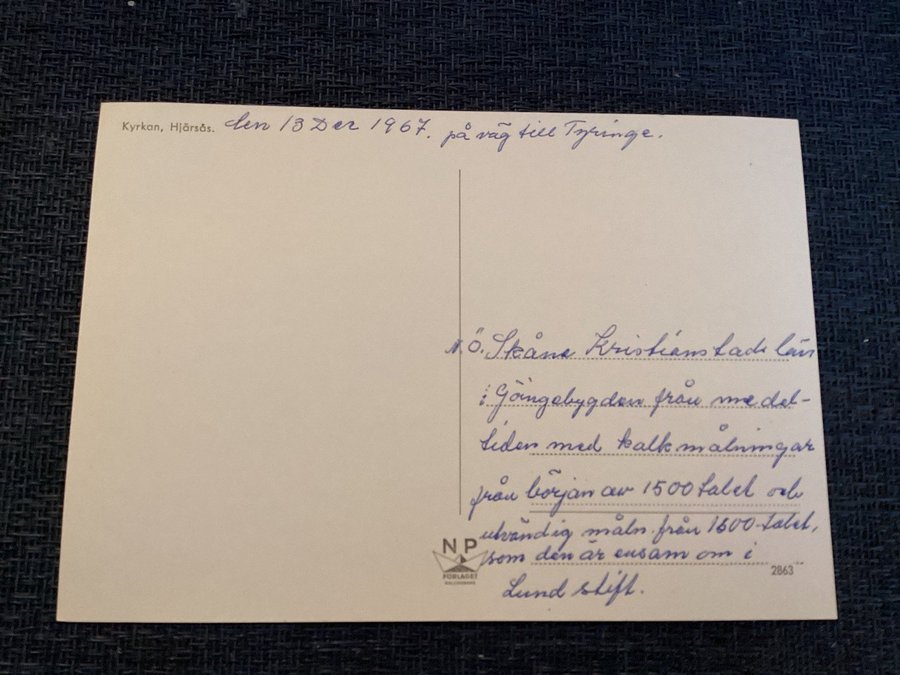 Kyrkan, Hjärsås. den 13 Dec 1967. på väg till Tyringe.
N.Ö. Skåne Kristianstads län
i Göingebygden från medel-
tiden med kalkmålningar
från början av 1500 talet och
utvändig måln. från 1600-talet,
som den är ensam om i
Lund stift.
NP
FÖRLAGET
2863